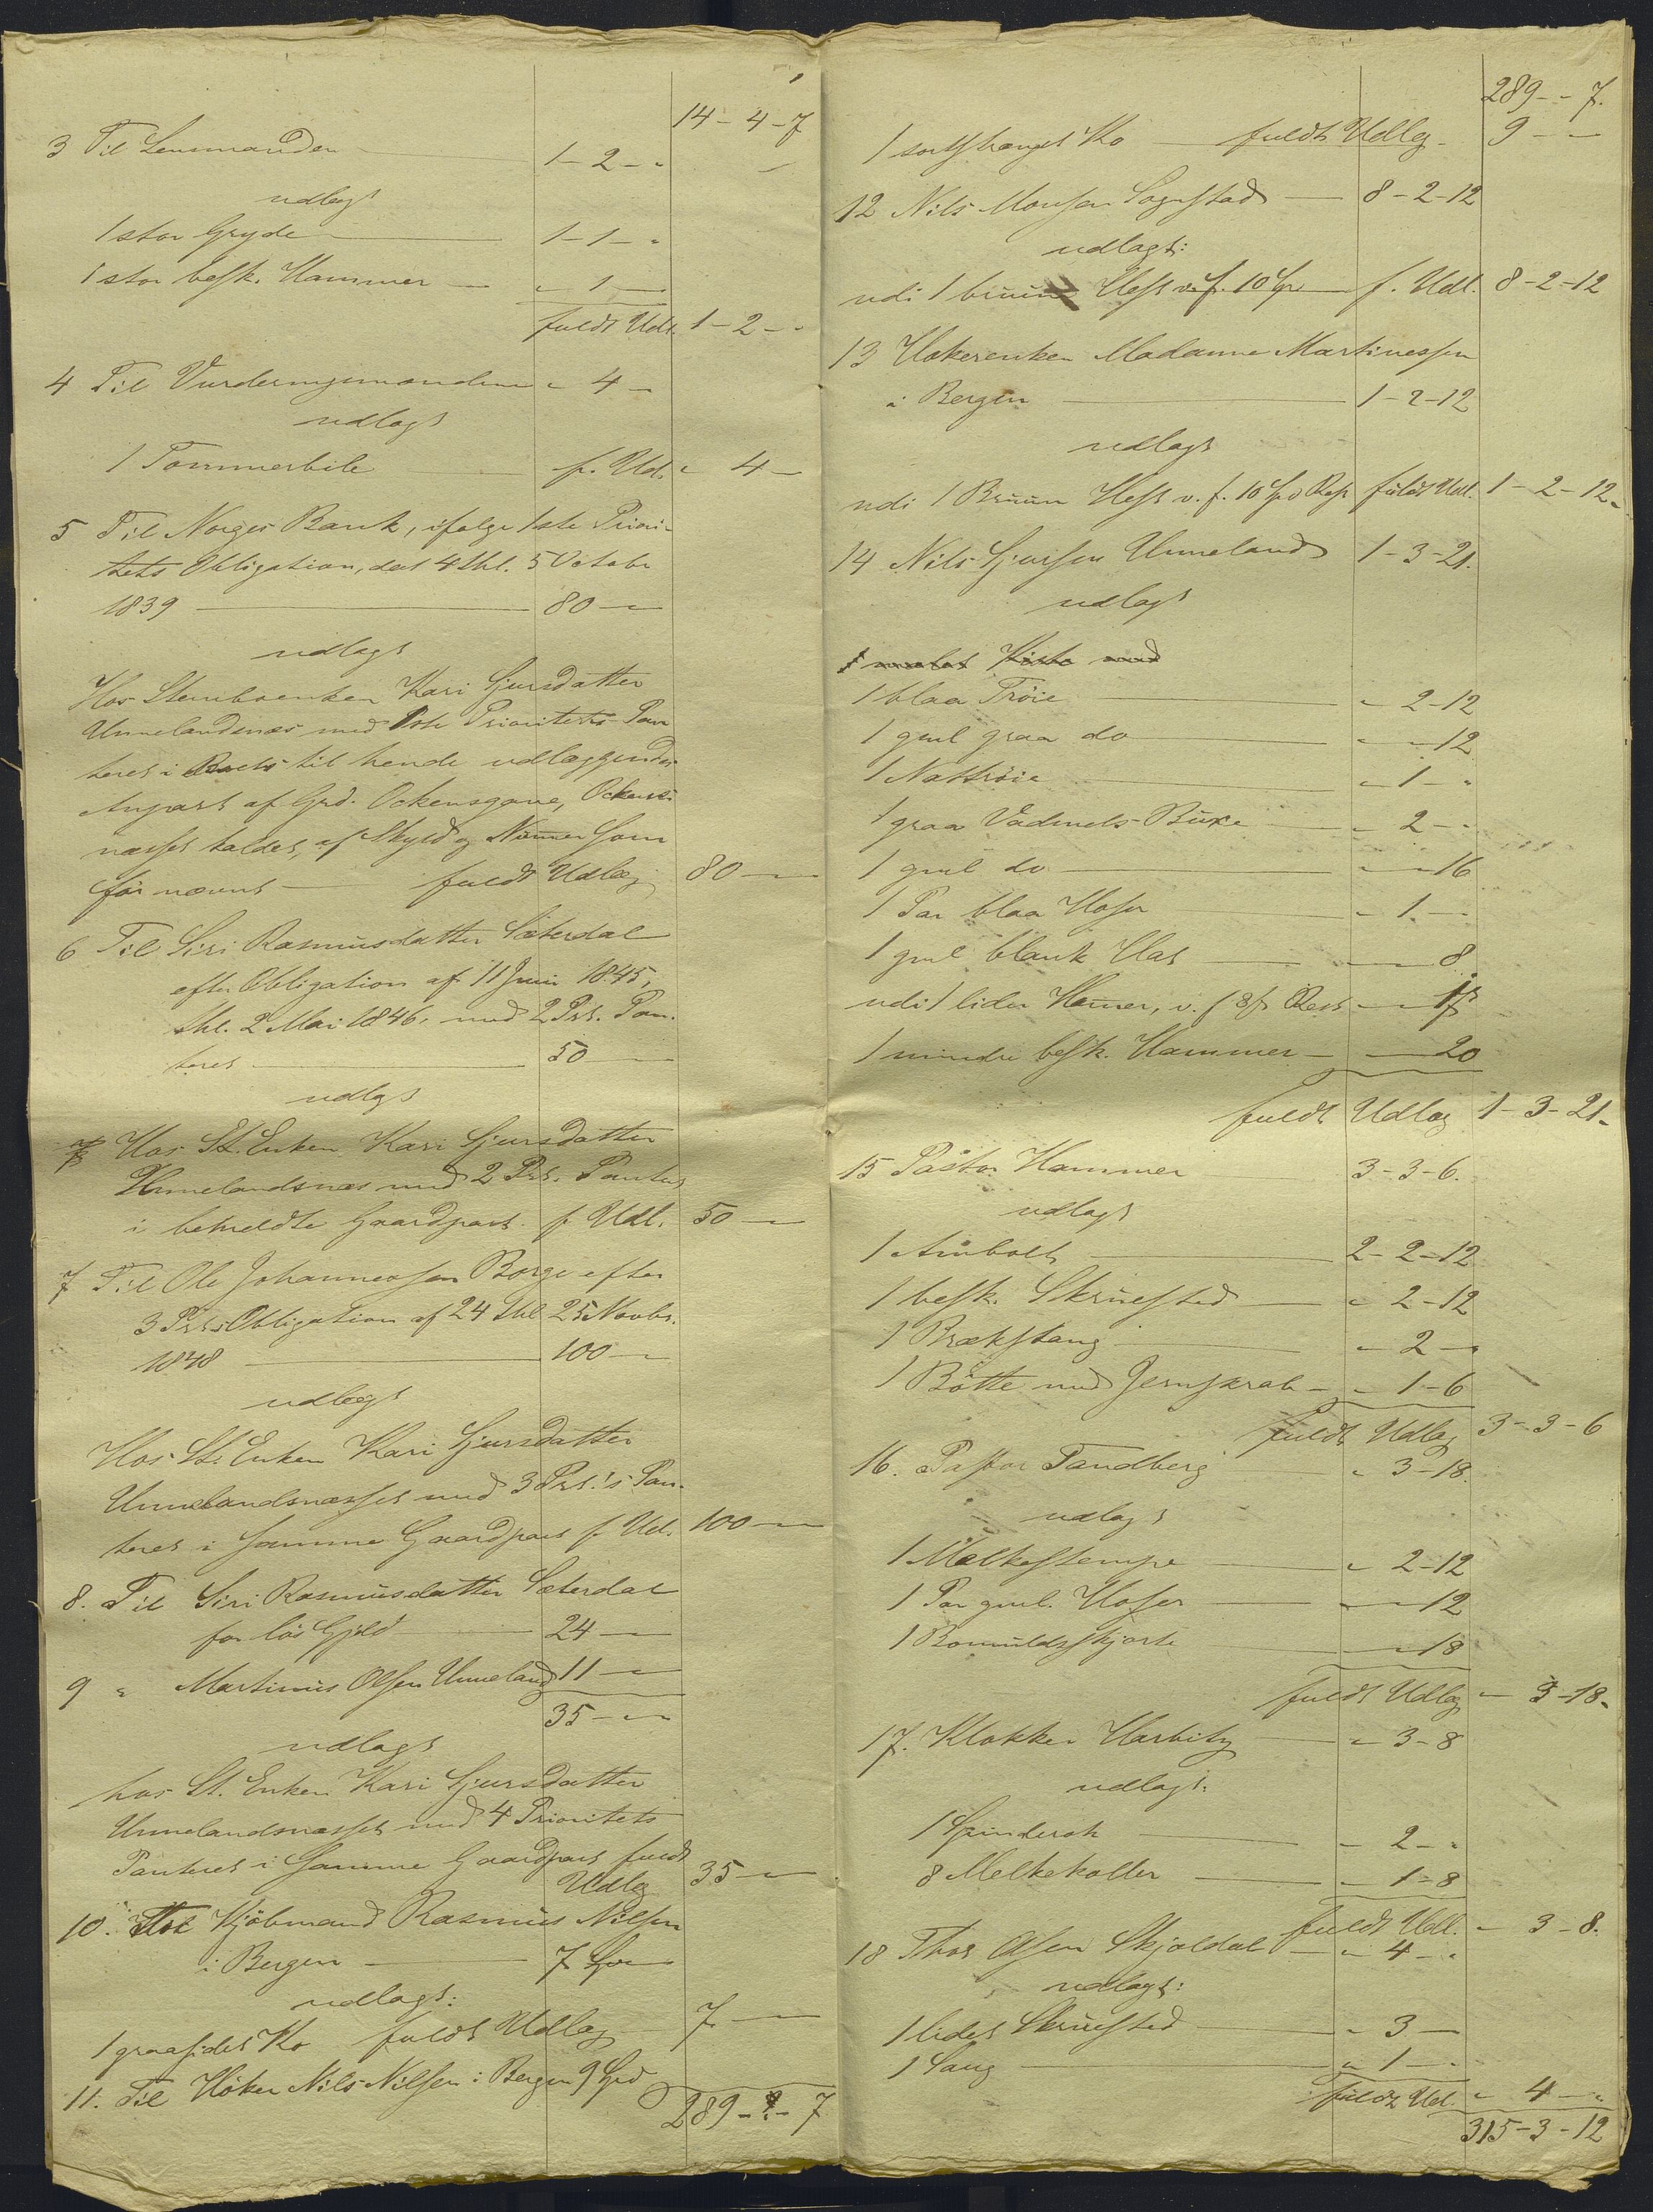 14 - 4 - 7
3 Til Lensmanden 1 - 2 - "
udlagt
1 stor Gryde 1 - 1 - "
1 stor besk. Hammer " 1 -
fuldt Udl. 1 - 2 - "
4 Til Vurderingsmændene " 4 -
udlagt
1 Tømmerbile f. Udl. " 4 -
5 Til Norges Bank, ifølge 1ste Priori-
tets Obligation, dat 4 thl. 5 Octobr
1839 80 - "
udlagt
Hos Sterboenken Kari Sjursdatter
Unnelandsnæs med 1ste Prioritets Pan
teret i til hende udlæggendes
Anpart af Grd. Ockensgave,
næsset kaldet, af Skyld og Nummer som
før nævnt fuldt Udlæg 80 -
6 Til Siri Rasmusdatter Sæterdal
efter Obligation af 11 Juni 1845,
thl. 2 Mai 1846, med 2 Prt. Pan-
teret 50 -
udlagt
Hos St. Enken Kari Sjursdatter
Unnelandsnæs med 2 Prt. Panteret
i bemeldte Gaardpart f Udl. 50 -
7 Til Ole Johannessen Borge efter
3 Prts Obligation af 24 thl 25 Novbr.
1848 100 -
udlagt
Hos St. Enken Kari Sjursdatter
Unnelandsnæsset med 3 Prt.'s Pan-
teret i samme Gaardpart f Udl. 100 -
8. Til Siri Rasmusdatter Sæterdal
for løs Gjeld 24 -
9 " Martinus Olsen Unneland 11 -
35 - "
udlagt
hos St. Enken Kari Sjursdatter
Unnelandsnæsset med 4 Prioritets
Panteret i samme Gaardpart fuldt
Udlæg 35 -
10. Kjøbmand Rasmus Nilsen
i Bergen 7
udlagt:
1 graasidet Ko fuldt Udlæg 7 -
11. Til Høker Nils Nilsen i Bergen 9 Spd
289 - " - 7
289 - - 7.
1 Ko fuldt Udlæg 9 - -
12 Nils Monsen Sognstad 8 - 2 - 12
udlagt:
udi 1 bruun Hest v. f. 10 Sp f. Udl. 8 - 2 - 12
13 Høkerenken Madamme Martinessen
i Bergen 1 - 2 - 12
udlagt
udi 1 Bruun Hest v. f. 10 Spd Rest fuldt Udl. 1 - 2 - 12
14 Nils Sjursen Unneland 1 - 3 - 21.
udlagt
1 malet Kiste med
1 blaa Trøie " 2 - 12
1 gml graa do " " 12
1 Nattrøie " 1 - "
1 graa Vadmels-Buxe " 2 - "
1 gml do " " 16
1 Par blaa Hoser " 1 -
1 gml blank Hat " - 8
udi 1 liden Hammer, v. f 8 s Rest " - 1
1 mindre besk. Hammer - 20
fuldt Udlæg 1 - 3 - 21
15 Pastor Hammer 3 - 3 - 6.
udlagt
1 Ambolt 2 - 2 - 12
1 besk. Skruested " 2 - 12
1 Brækstang " 2 - "
1 Bøtte med Jernskrab " 1 - 6
fuldt Udlæg 3 - 3 - 6
16. Pastor Tandberg " 3 - 18.
udlagt
1 Mælkestempe " 2 - 12
1 Par gml. Hoser " 12
1 Bomuldsskjorte " 18
fuldt Udlæg " 3 - 18
17. Klokker Harbitz " 3 - 8
udlagt:
1 Spinderok " 2 - "
8 Melkekoller " 1 - 8
fuldt Udl. " 3 - 8.
18 Thor Olsen Skjoldal " 4 - "
udlagt:
1 lidet Skruested " 3 -
1 Saug " 1 -
fuldt Udl. " 4 - "
315 - 3 - 12